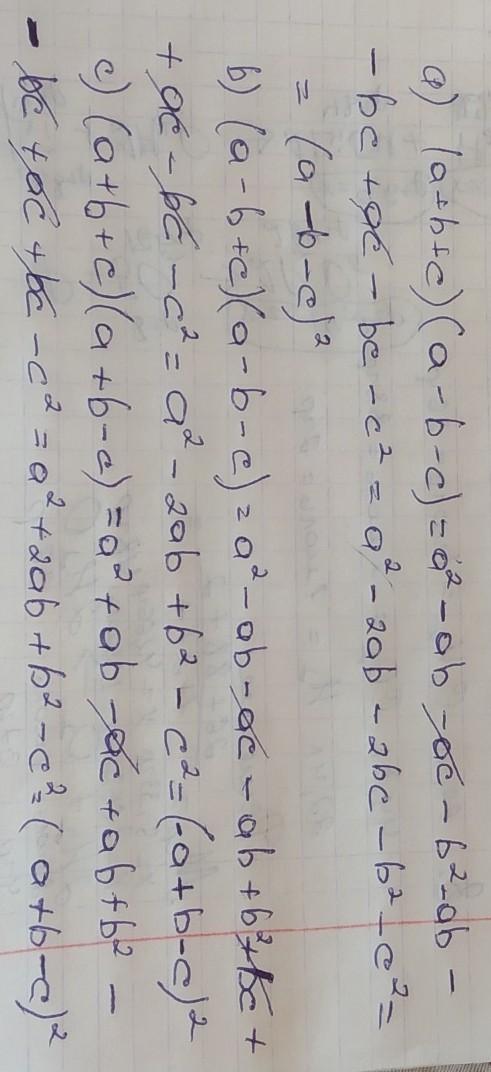 a) (a+b+c)(a-b-c)=a²-ab-ac-b²-ab-
-bc+ac-bc-c²=a²-2ab-2bc-b²-c²=
=(a-b-c)²
b) (a-b+c)(a-b-c)=a²-ab-ac-ab+b²+bc+
+ac-bc-c²=a²-2ab+b²-c²=(-a+b-c)²
c) (a+b+c)(a+b-c)=a²+ab-ac+ab+b²-
-bc+ac+bc-c²=a²+2ab+b²-c²=(a+b-c)²